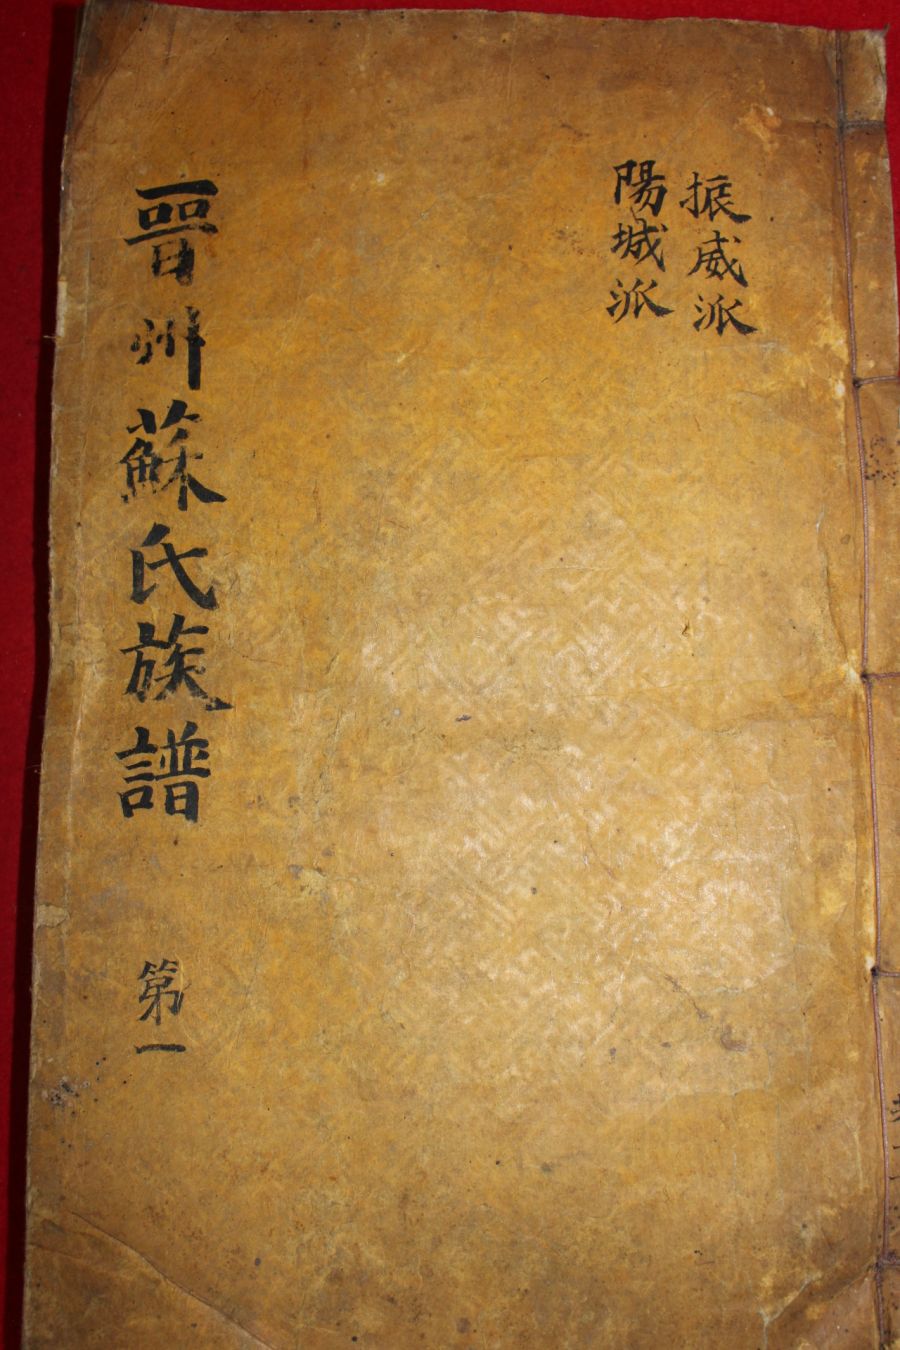 振威派
陽城派
晉州蘇氏族譜
第一